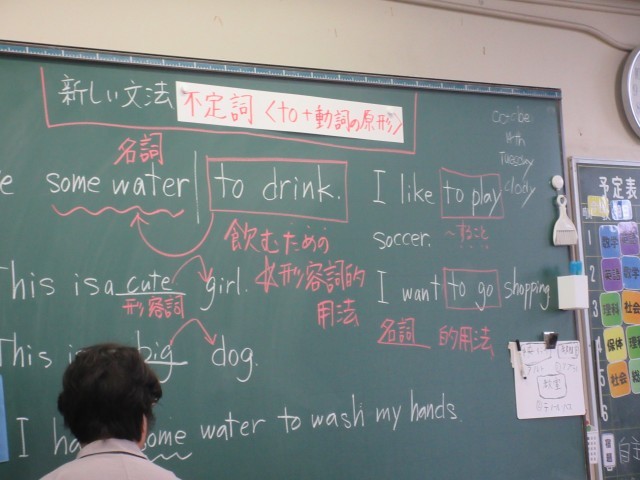 新しい文法 不定詞 〈to+動詞の原形〉
名詞
some water to drink.
飲むための
形容詞的
用法
This is a cute girl.
形容詞
This big dog.
I some water to wash my hands.
I like to play
soccer. ～すること
I want to go shopping
名詞 的用法
Tuesday
予定表
1 数学
2 英語 数学
3 理科 社会
4 保体 理科
5 社会
6
教室